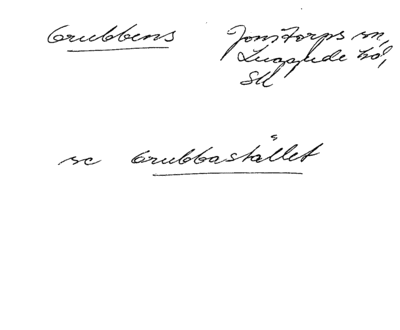 Grubbens Jonstorps sn,
Luggude hd,
Sk
se Grubbastället